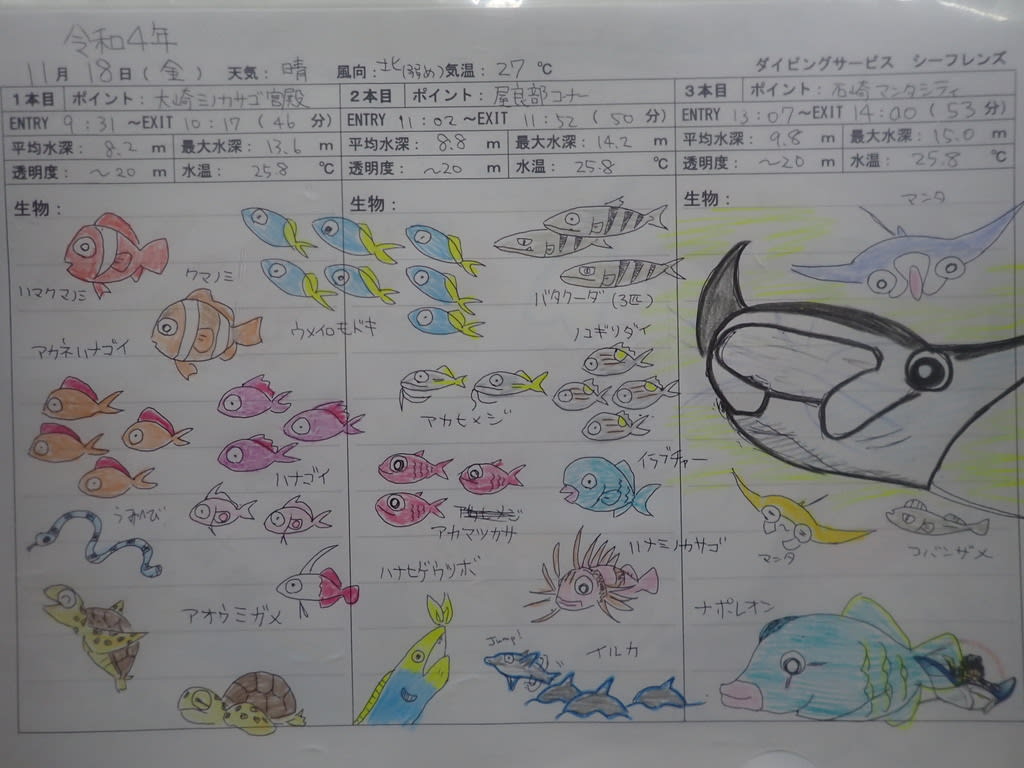 令和4年
11月 18日(金) 天気: 晴 風向: 北(弱め) 気温: 27 ℃ ダイビングサービス シーフレンズ
1本目 ポイント: 大崎ミノカサゴ宮殿
ENTRY 9:31 ~EXIT 10:17 (46分)
平均水深: 8.2 m 最大水深: 13.6 m
透明度: ~20 m 水温: 25.8 ℃
生物:
ハマクマノミ
クマノミ
ウメイロモドキ
アカネハナゴイ
ハナゴイ
うみへび
アオウミガメ
2本目 ポイント: 屋良部コーナー
ENTRY 11:02 ~EXIT 11:52 (50分)
平均水深: 8.8 m 最大水深: 14.2 m
透明度: ~20 m 水温: 25.8 ℃
生物:
バラクーダ(3匹)
ノコギリダイ
アカヒメジ
イラブチャー
アカマツカサ
ハナミノカサゴ
ハナヒゲウツボ
Jump!
イルカ
3本目 ポイント: 石崎マンタシティ
ENTRY 13:07 ~EXIT 14:00 (53分)
平均水深: 9.8 m 最大水深: 15.0 m
透明度: ~20 m 水温: 25.8 ℃
生物:
マンタ
マンタ
コバンザメ
ナポレオン